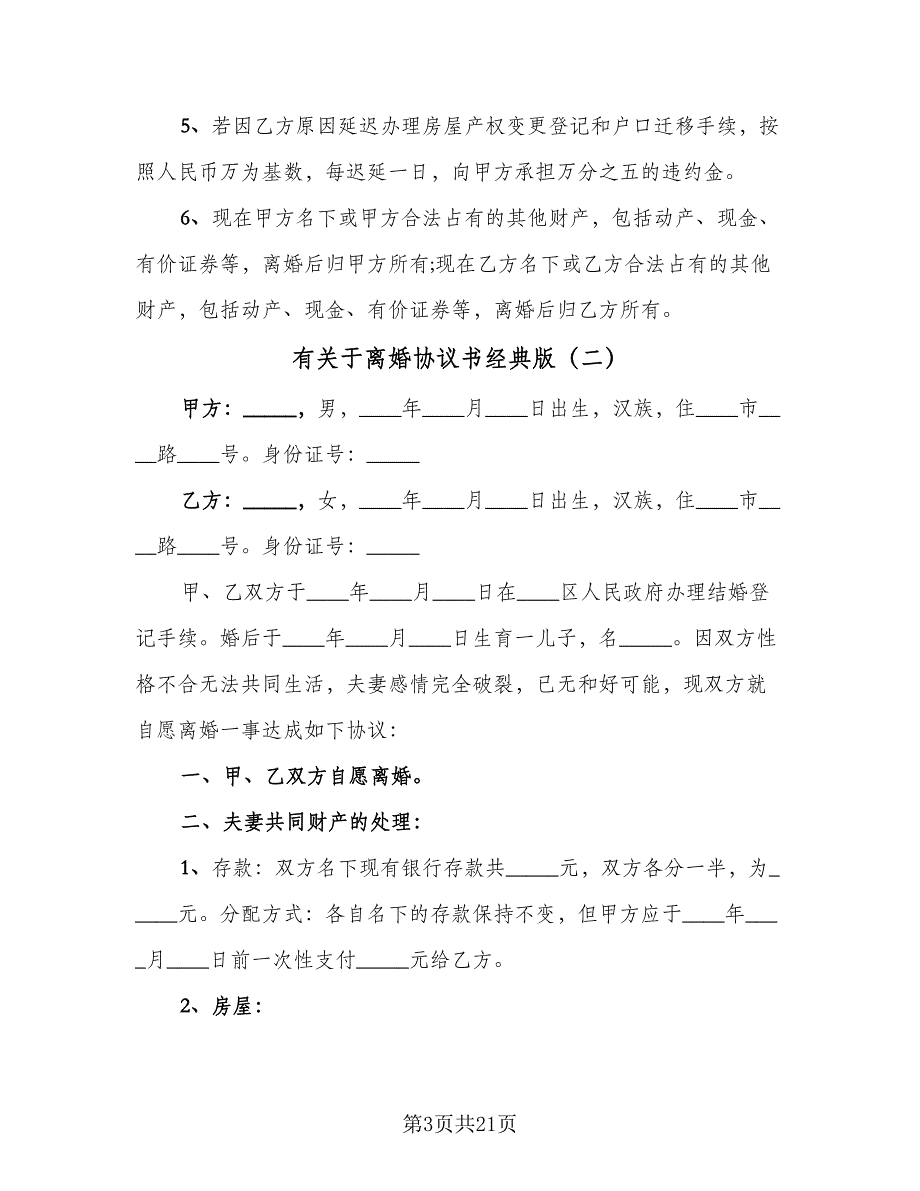 5、若因乙方原因延迟办理房屋产权变更登记和户口迁移手续，按
照人民币万为基数，每迟延一日，向甲方承担万分之五的违约金。
6、现在甲方名下或甲方合法占有的其他财产，包括动产、现金、
有价证券等，离婚后归甲方所有;现在乙方名下或乙方合法占有的其他
财产，包括动产、现金、有价证券等，离婚后归乙方所有。
有关于离婚协议书经典版（二）
甲方：_____，男，____年____月____日出生，汉族，住____市__
__路____号。身份证号：_____
乙方：_____，女，____年____月____日出生，汉族，住____市__
__路____号。身份证号：_____
甲、乙双方于____年____月____日在____区人民政府办理结婚登
记手续。婚后于____年____月____日生育一儿子，名_____。因双方性
格不合无法共同生活，夫妻感情完全破裂，已无和好可能，现双方就
自愿离婚一事达成如下协议：
一、甲、乙双方自愿离婚。
二、夫妻共同财产的处理：
1、存款：双方名下现有银行存款共_____元，双方各分一半，为_
____元。分配方式：各自名下的存款保持不变，但甲方应于____年___
_月____日前一次性支付_____元给乙方。
2、房屋：
第3页共21页